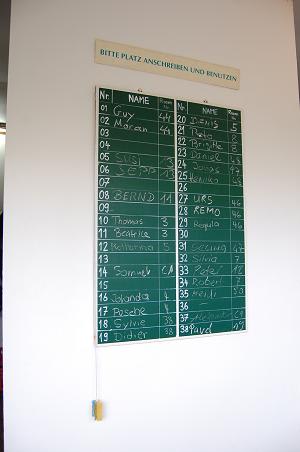 BITTE PLATZ ANSCHREIBEN UND BENUTZEN
Nr. NAME Room
01 Guy 44
02 Maran 44
03
04
05 SUSI 13
06 SEPP 13
07
08 BERND 11
09
10 Thomas 3
11 Beatrice 3
12 Katharina 5
13
14 Samuel
15
16 Jolanda 4
17 Pasche 4
18 Sylvie 38
19 Didier 38
Nr. NAME Room
20 Denis 5
21 5
22 Brigitte 8
23 Daniel 48
24 Jonas 47
25
26
27 URS 46
28 REMO 46
29 Regula 46
30
31 47
32 Silvia 7
33 Peter 12
34 Robert
35 Heidi 50
36
37
38 Pavel 49